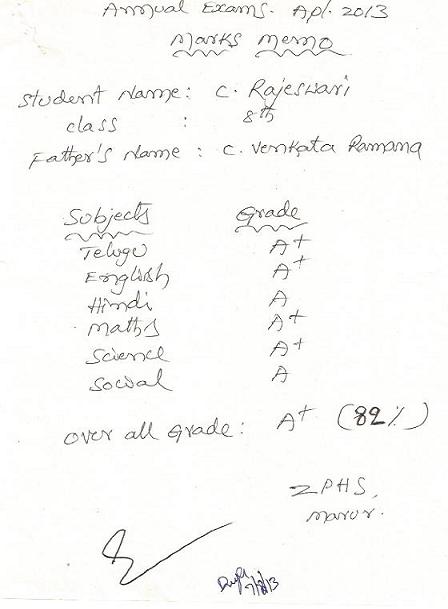 Annual Exams. Apl. 2013
Marks Memo
Student Name: C. Rajeswari
class : 8th
Father's Name : C. Venkata Ramana
Subjects Grade
Telugu A+
English A+
Hindi A
Maths A+
Science A+
Social A
over all Grade: A+ (82%)
ZPHS,
Marur.